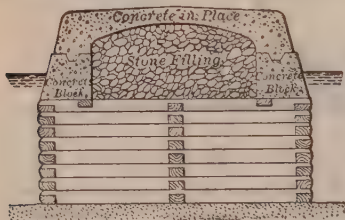 Concrete in Place
Stone Filling
Concrete Block
Concrete Block